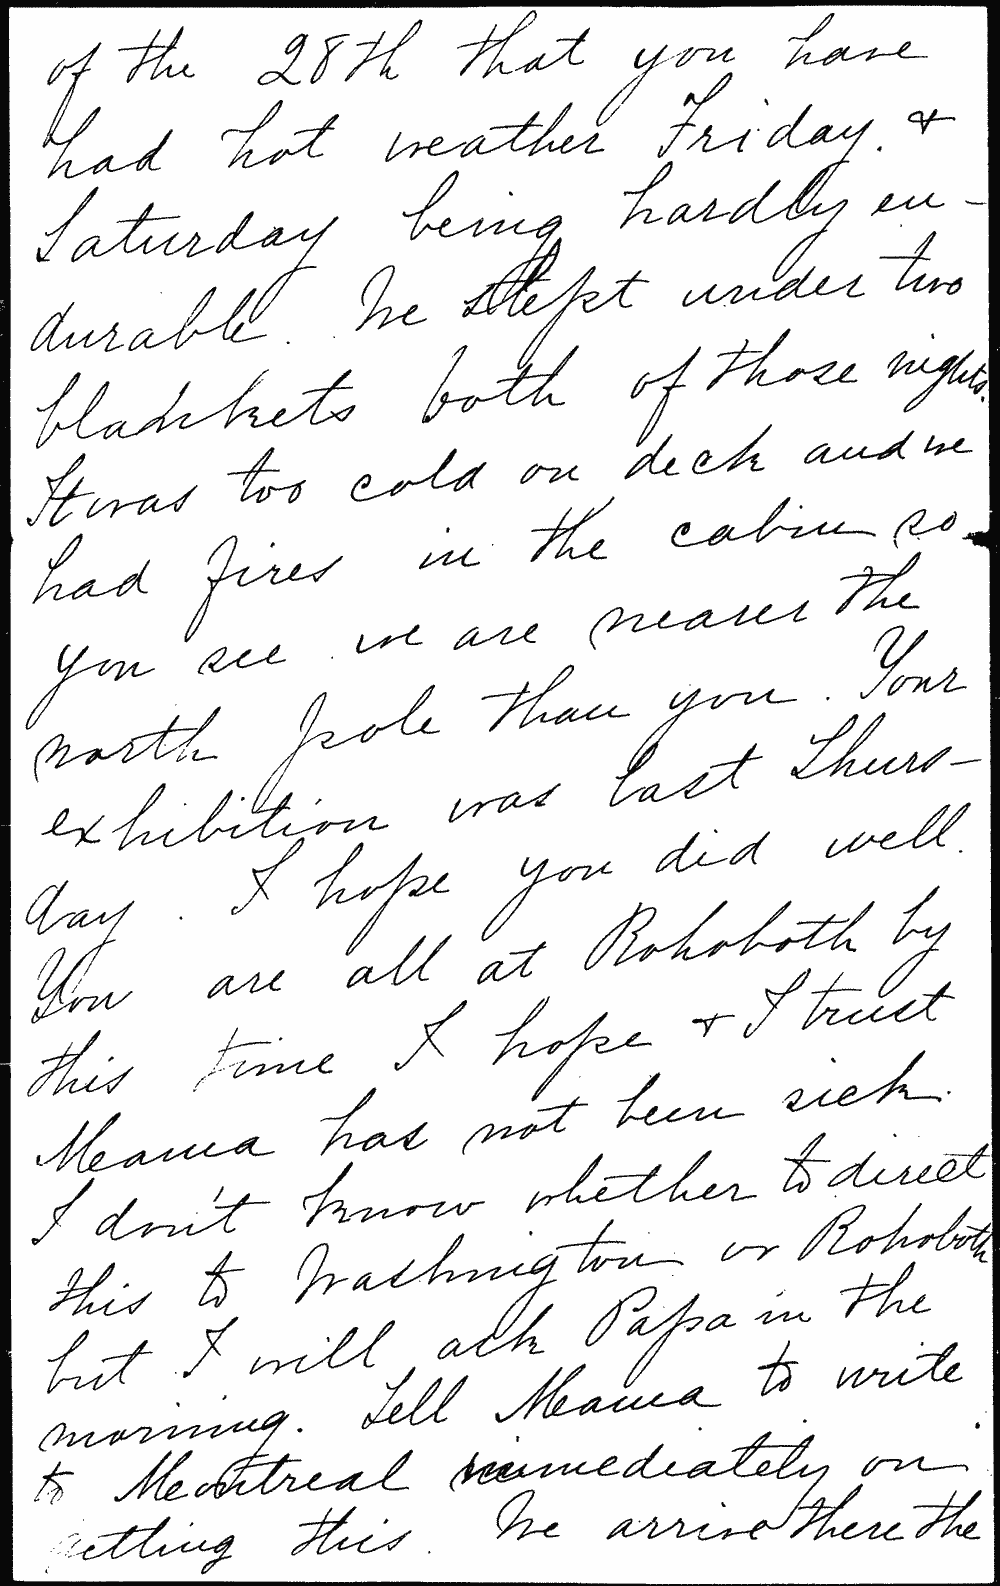 of the 28th that you have
had hot weather Friday. &
Saturday being hardly en-
durable. We slept under two
blankets both of those nights.
It was too cold on deck and we
had fires in the cabin so
you see we are nearer the
north pole than you. Your
exhibition was last Thurs-
day. I hope you did well.
You are all at Rohoboth by
this time I hope & I trust
Mama has not been sick.
I don't know whether to direct
this to Washington or Rohoboth
but I will ask Papa in the
morning. Tell Mama to write
to Montreal immediately on
getting this. We arrive there the